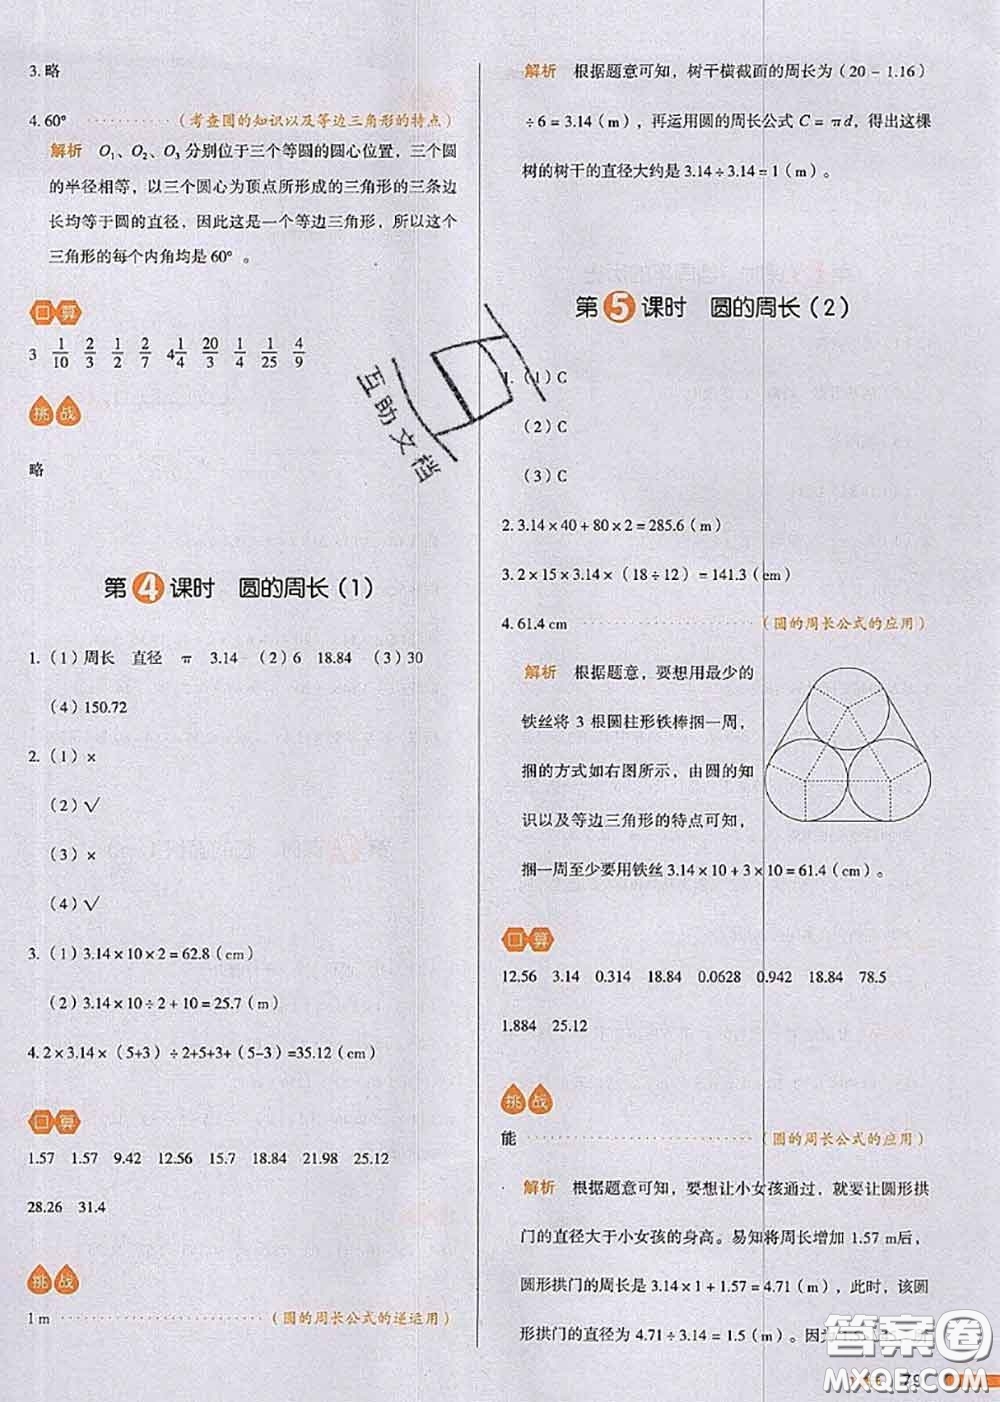 3. 略
4. 60° ············ (考查圆的知识以及等边三角形的特点)
解析 O₁、O₂、O₃ 分别位于三个等圆的圆心位置，三个圆
的半径相等，以三个圆心为顶点所形成的三角形的三条边
长均等于圆的直径，因此这是一个等边三角形，所以这个
三角形的每个内角均是 60° 。
口算
3 1/10 2/3 1/2 2/7 4 1/4 20/3 1/4 1/25 4/9
挑战
略
第4课时 圆的周长(1)
1. (1) 周长 直径 π 3.14 (2) 6 18.84 (3) 30
(4) 150.72
2. (1) ×
(2) √
(3) ×
(4) √
3. (1) 3.14 × 10 × 2 = 62.8 (cm)
(2) 3.14 × 10 ÷ 2 + 10 = 25.7 (m)
4. 2 × 3.14 × (5+3) ÷ 2+5+3+ (5-3) =35.12 (cm)
口算
1.57 1.57 9.42 12.56 15.7 18.84 21.98 25.12
28.26 31.4
挑战
1 m ············ (圆的周长公式的逆运用)
解析 根据题意可知，树干横截面的周长为 (20 - 1.16)
÷ 6 = 3.14 (m)，再运用圆的周长公式 C = πd，得出这棵
树的树干的直径大约是 3.14 ÷ 3.14 = 1 (m)。
第5课时 圆的周长(2)
1. (1) C
(2) C
(3) C
2. 3.14 × 40 + 80 × 2 = 285.6 (m)
3. 2 × 15 × 3.14 × (18 ÷ 12) = 141.3 (cm)
4. 61.4 cm ············ (圆的周长公式的应用)
解析 根据题意，要想用最少的
铁丝将 3 根圆柱形铁棒捆一周，
捆的方式如右图所示，由圆的知
识以及等边三角形的特点可知，
捆一周至少要用铁丝 3.14 × 10 + 3 × 10 = 61.4 (cm)。
口算
12.56 3.14 0.314 18.84 0.0628 0.942 18.84 78.5
1.884 25.12
挑战
能 ············ (圆的周长公式的应用)
解析 根据题意可知，要想让小女孩通过，就要让圆形拱
门的直径大于小女孩的身高。易知将周长增加 1.57 m后，
圆形拱门的周长是 3.14 × 1 + 1.57 = 4.71 (m)，此时，该圆
形拱门的直径为 4.71 ÷ 3.14 = 1.5 (m)。因为
79
互助文档
答案圈
MXQE.COM